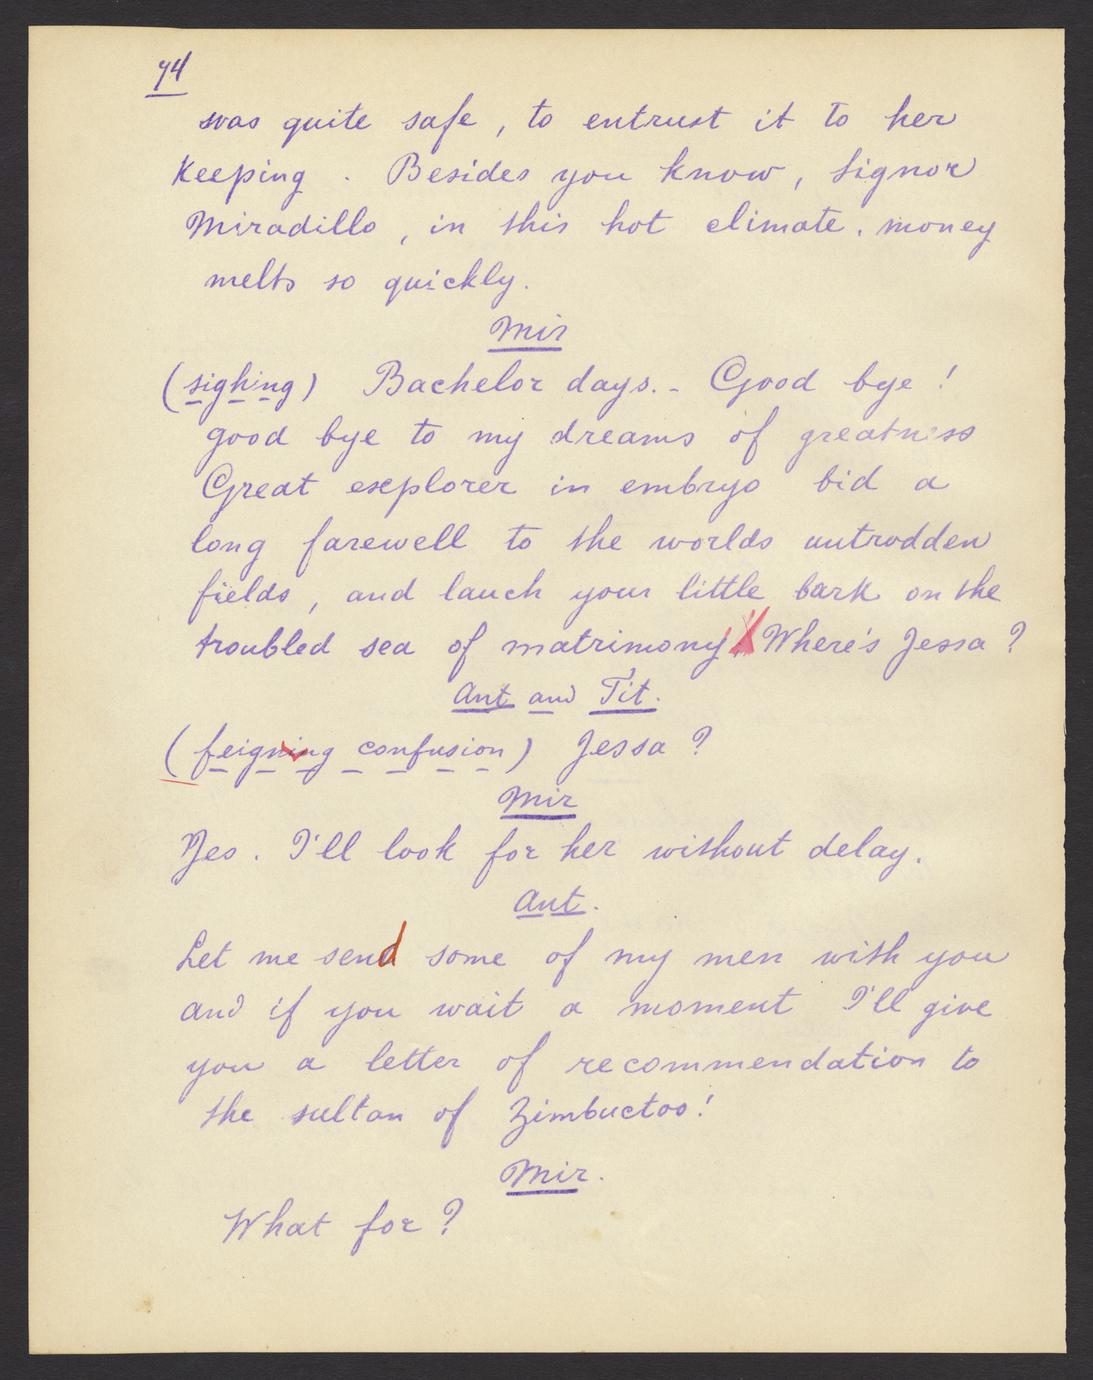 74
was quite safe, to entrust it to her
Keeping. Besides you know, Signor
Miradillo, in this hot climate. money
melts so quickly.
Mir
(sighing) Bachelor days. - Good bye!
good bye to my dreams of greatness
Great explorer in embryo bid a
long farewell to the worlds untrodden
fields, and lauch your little bark on the
troubled sea of matrimony Where's Jessa?
Ant and Tit.
(feigning confusion) Jessa?
Mir
Yes. I'll look for her without delay.
Ant.
Let me send some of my men with you
and if you wait a moment I'll give
you a letter of recommendation to
the sultan of Zimbuctoo!
Mir.
What for?